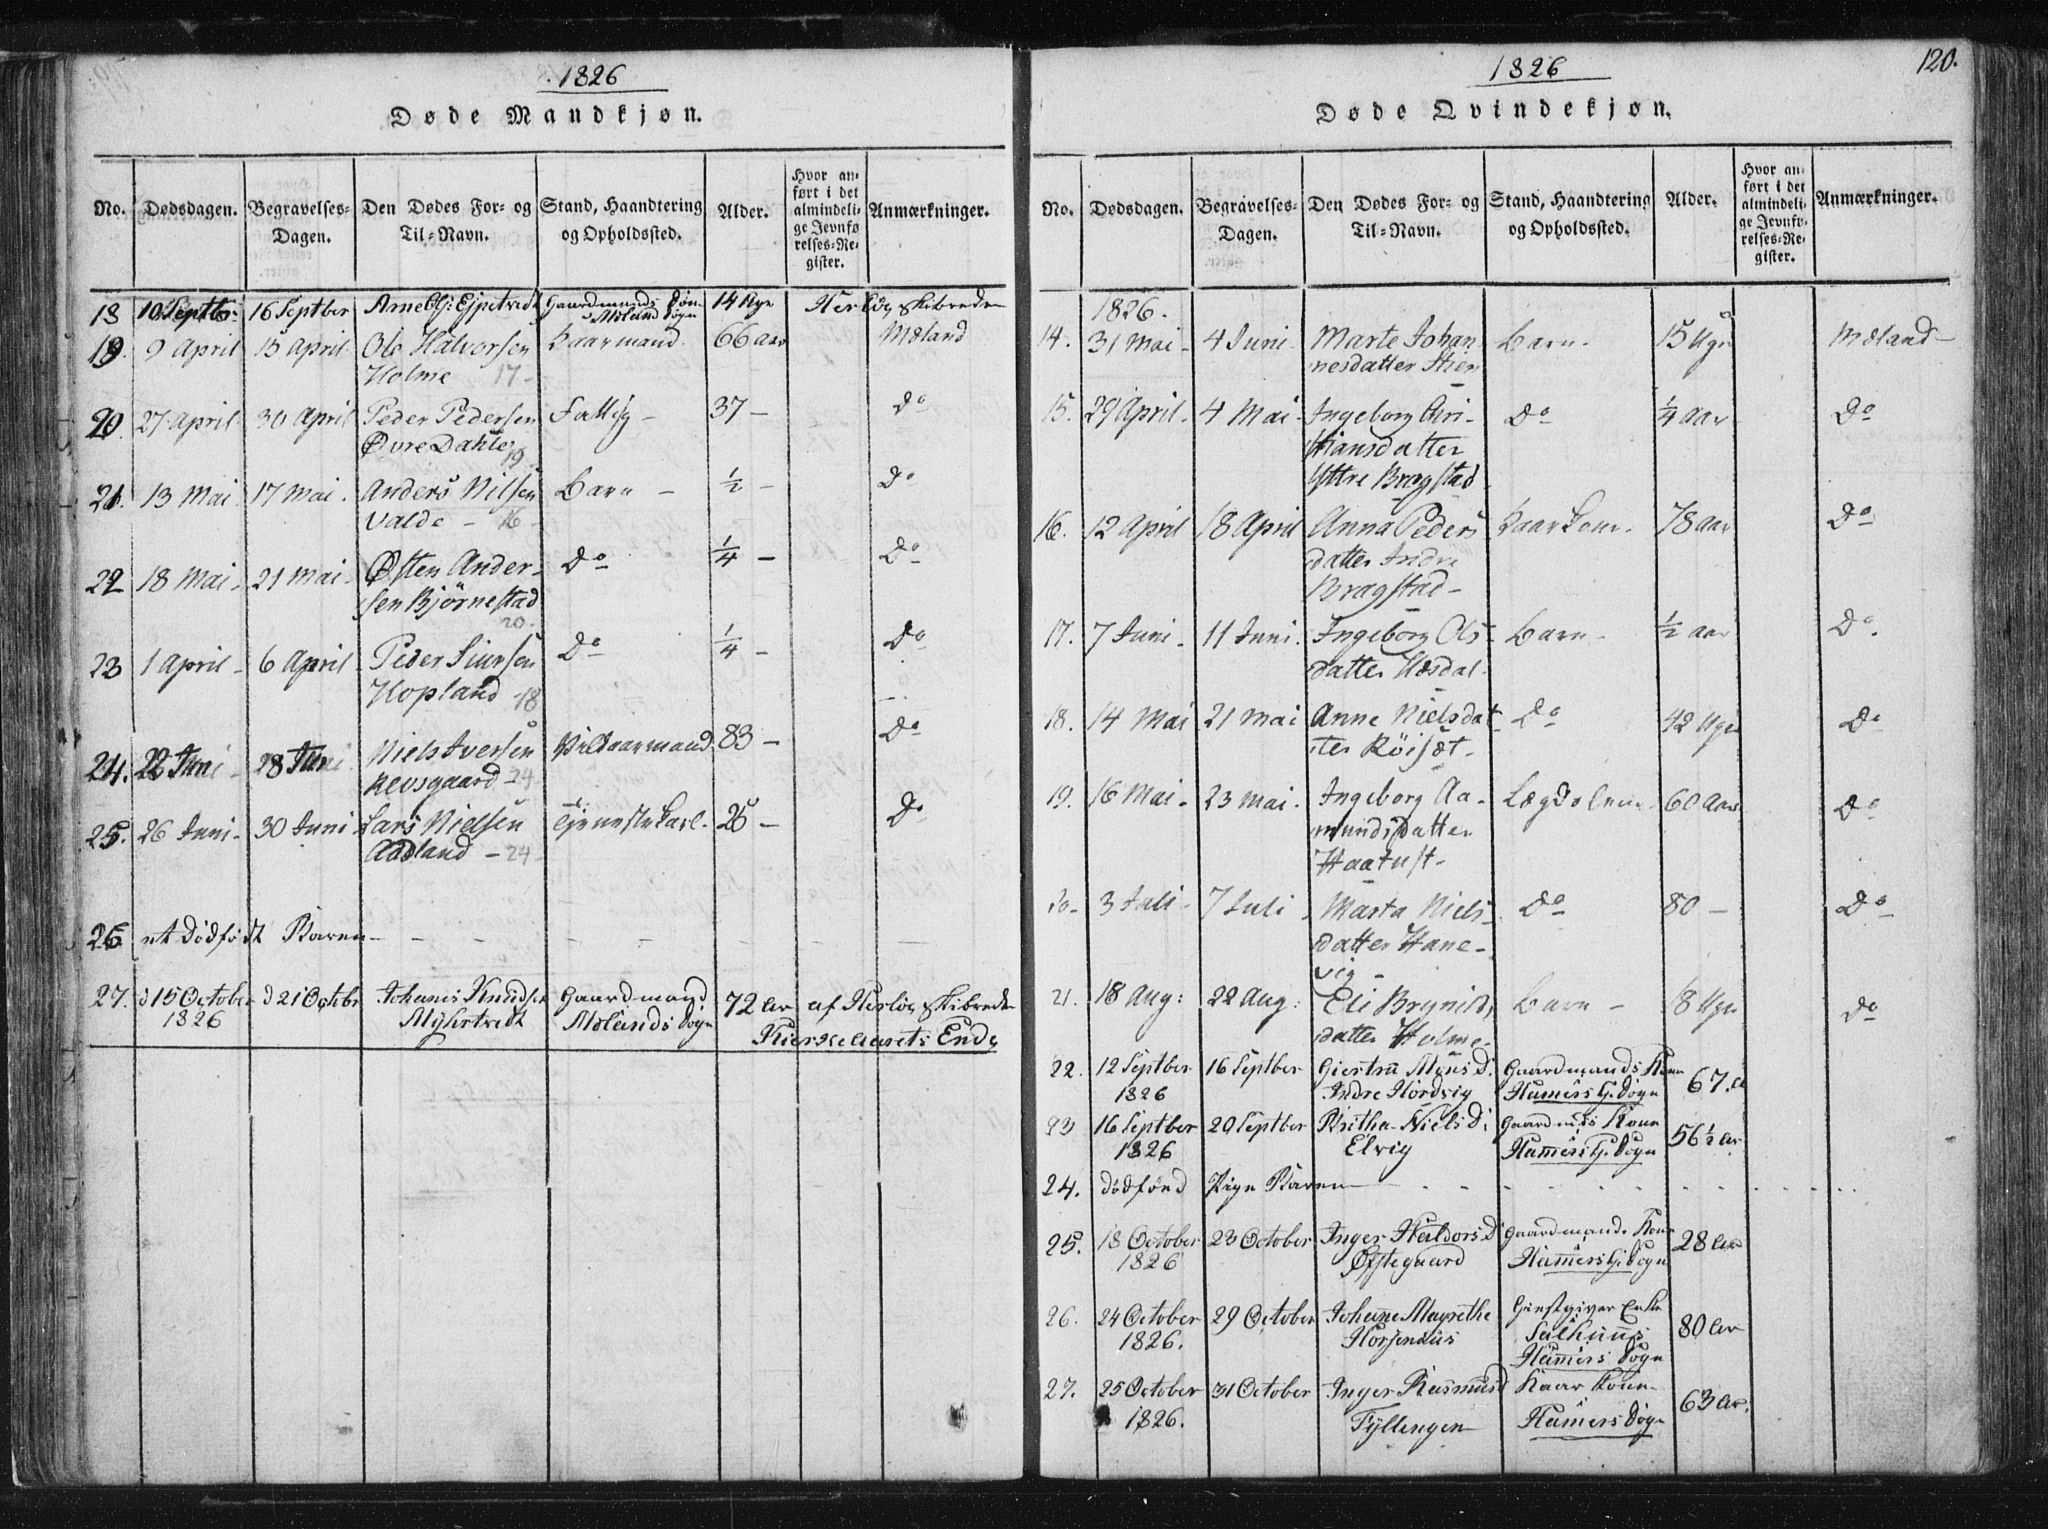 1826
Døde Mandkjøn.
No. Dødsdagen. Begravelses-Dagen. Den Dødes For- og Til-Navn. Stand, Haandtering og Opholdssted. Alder. Hvor anført i det almindelige Jevnførelses-Register. Anmærkninger.
18 10 Septbr: 16 Septber Gaardmands Søn 14 Uge
Mæland Sogn
19 9 April 15 April Ole Halvorsen Kaarmand. 66 aar Mæland
Holme 17-
20. 27 April 30 April Peder Pedersen Fattig - 37 - Do
Øvre Dahle 19
21. 13 Mai 17 Mai. Anders Nilsen Barn - ½ - Do
Valde - 16-
22 18 Mai - 21 Mai - Østen Ander- Do ¼ - Do
sen Bjørnestad
20.
23 1 April - 6 April - Peder Siursen Do ¼ - Do
Hopland 18
24. 22 Juni - 28 Juni Niels Iversen 83 - Do
Revsgaard - 24
25. 26 Juni - 30 Juni Lars Nielsen Tjenestekarl. 26 - Do
Aadland - 24
26 et dödfødt Barn - - - - - -
27. d 15 October d 21 Octbr Johanes Knudsen Gaardmand 72 Ar af Herlöe Skibrede
1826 Myhrtvedt Mælands Sogn
Kierkeaarets Ende
1826 120.
Døde Qvindekjøn.
No. Dødsdagen. Begravelses-Dagen. Den Dødes For- og Til-Navn. Stand, Haandtering og Opholdssted. Alder. Hvor anført i det almindelige Jevnførelses-Register. Anmærkninger.
1826.
14. 31 Mai - 4 Juni - Marte Johan Barn - 15 Uger Mæland -
nesdatter
15. 29 April - 4 Mai - Ingeborg Chri- Do ¼ aar Do
stiansdatter
Yttre Bragstad
16. 12 April 18 April Anna Peders Kaarkone - 78 aar Do
datter Indre
Bragstad -
17. 7 Juni - 11 Juni. Ingeborg Ols- Barn - ½ aar Do.
datter Uesdal.
18. 14 Mai 21 Mai Anne Nielsdat Do 42 Uger Do
ter Röisæt -
19. 16 Mai - 23 Mai. Ingeborg Aa- Lægdslem 60 Aar Do
mundsdatter
Haatuft -
20 - 3 Juli - 7 Juli Marta Niels Do 80 - Do
datter Hane-
vig -
21. 18 Aug: 22 Aug: Eli Brynilds Barn - 18 Uger Do
datter Holme -
22. 12 Septber 16 Septber Giertru Mons D. Gaardmands Kone 67. A
1826 Indre Hordvig Hamers G. Sogn
23 16 Septber 20 Septber Britha Niels D: Gaardmds Kone 56 ½ Ar
1826 Elvig Hamers G. Sogn
24. dödfönd Pige Barn - - - - - -
25. 18 October 23 October Inger Haldors D Gaardmands Kone 28 Ar
1826 Øfstegaard Hamers G. Sogn
26. 24 October 29 October Johane Magrethe Giestgiver Enke 80 Ar
1826. Horsenius Salhuus
Hamers Sogn
27. 25 October 31 October Inger Rasmusd Kaar Kone 63 Ar.
1826. Fyllingen Hamers Sogn